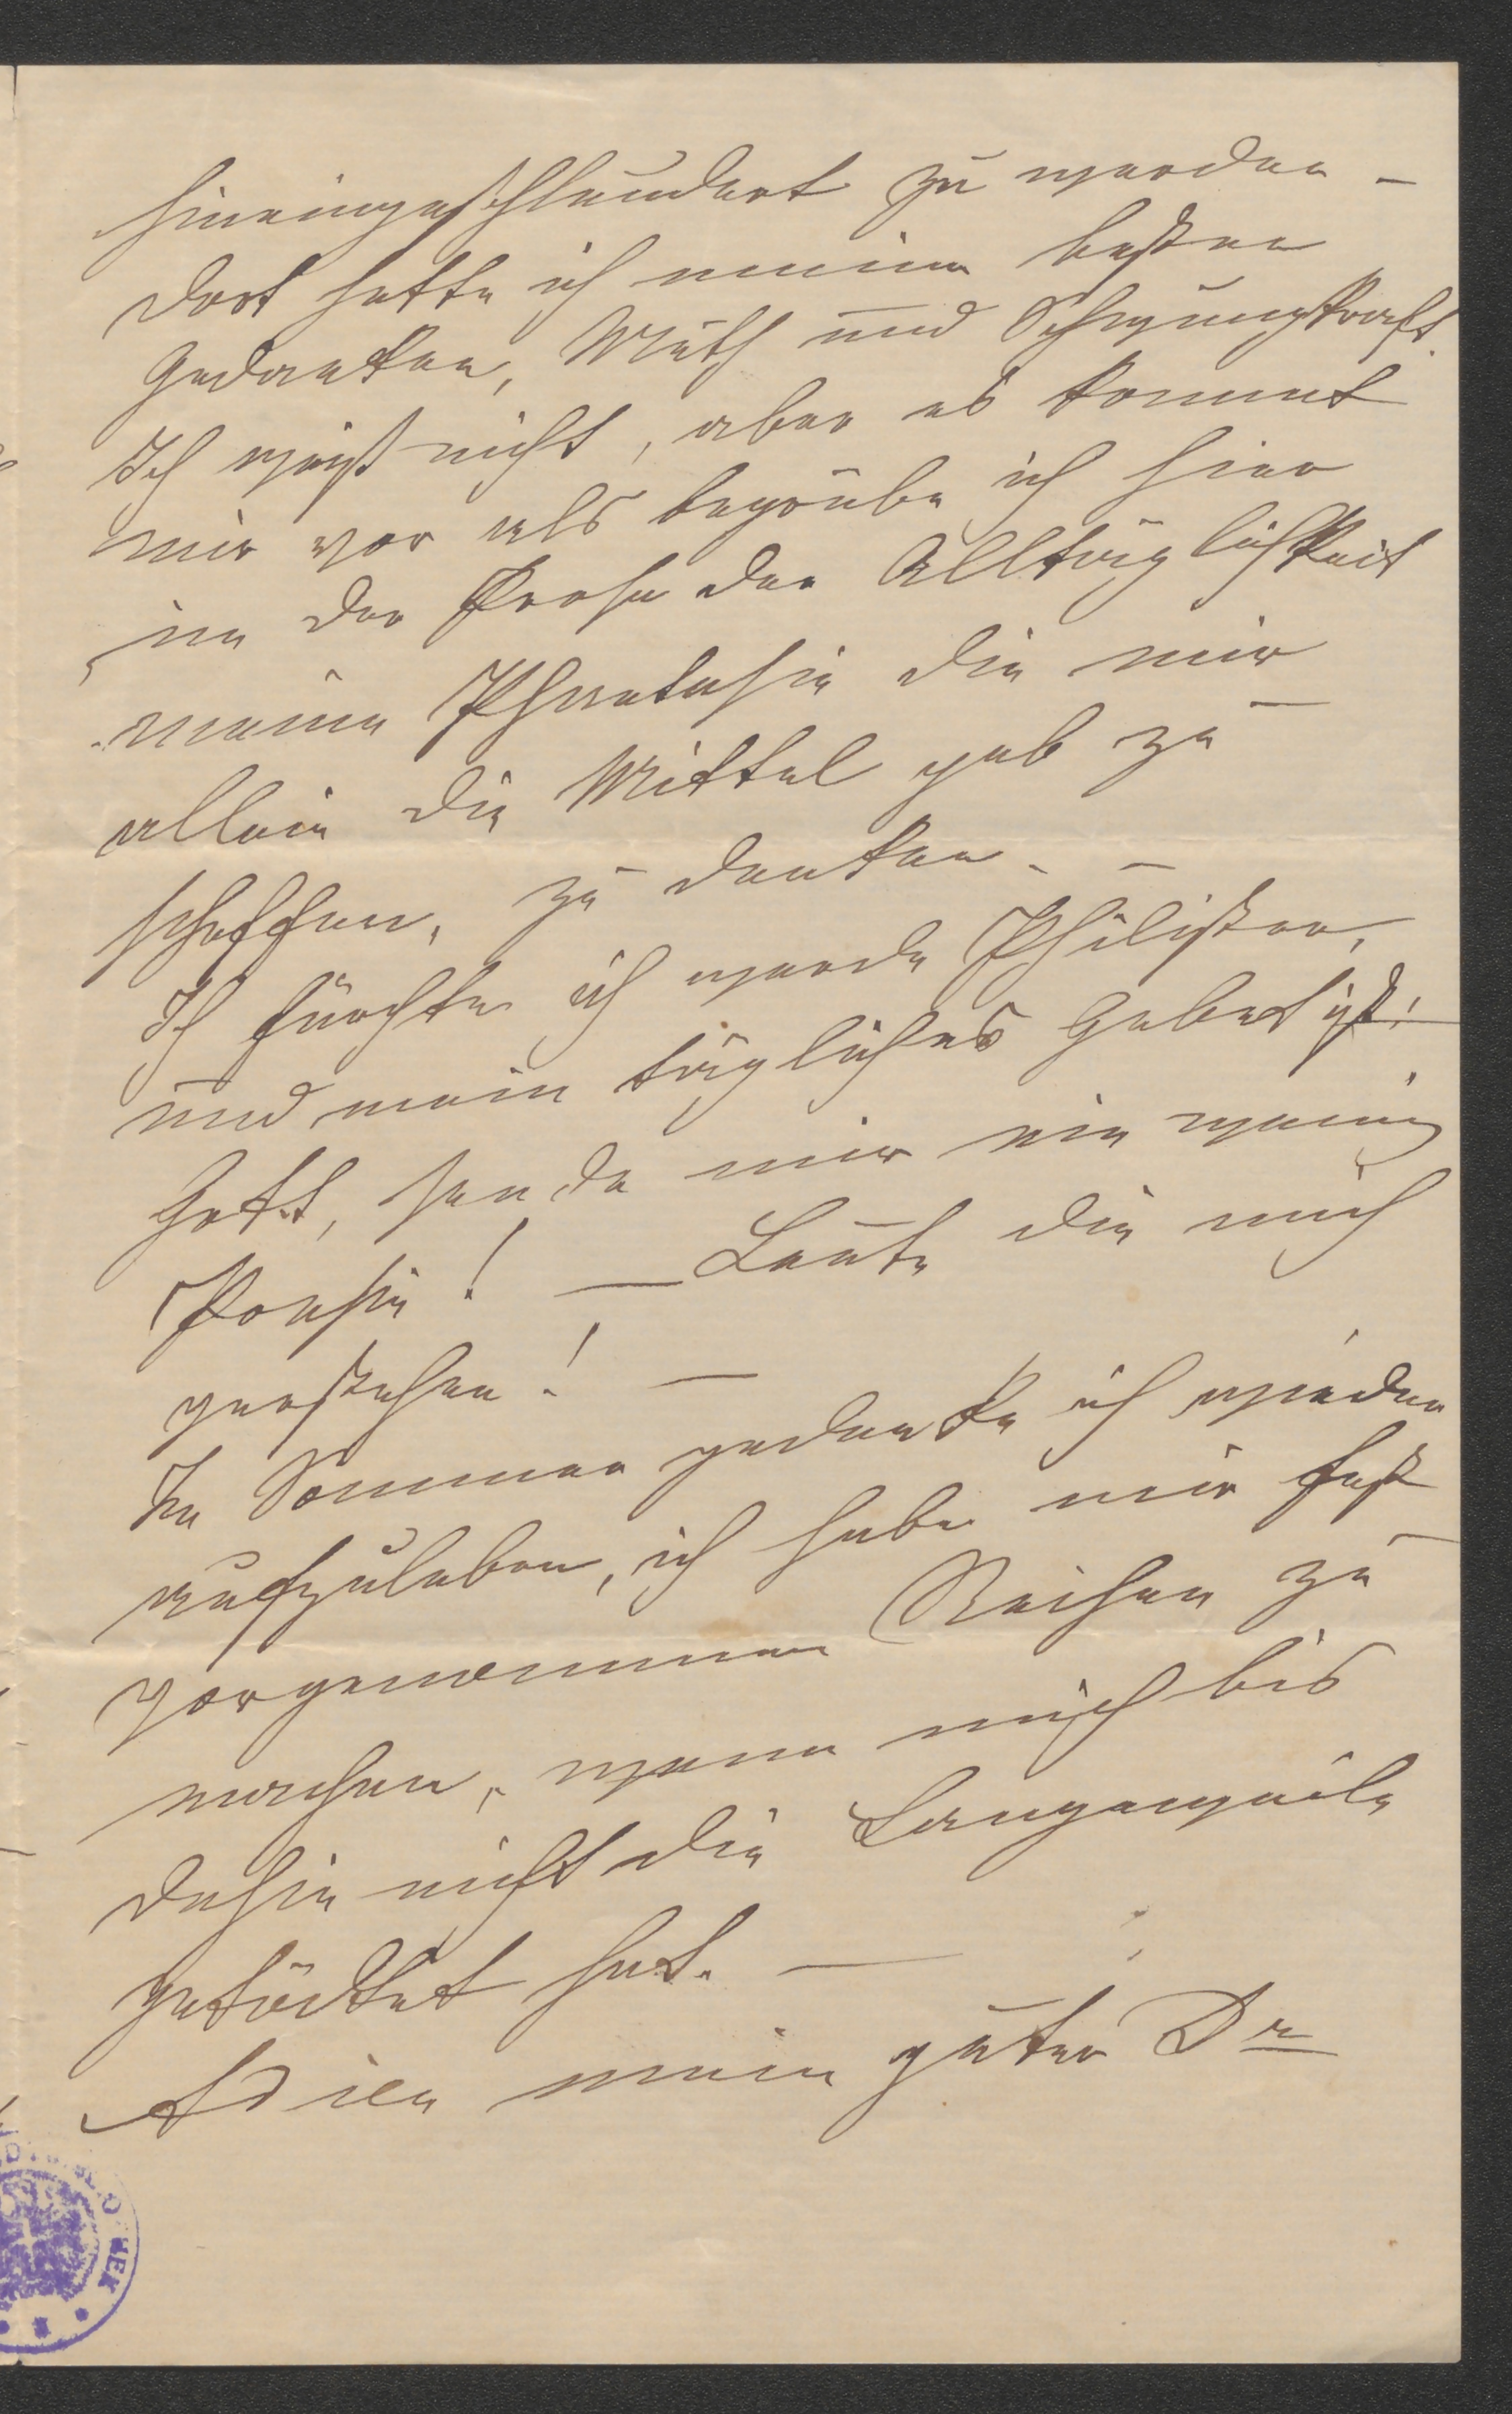 hineingeschleudert zu werden –
dort hatte ich meine besten
Gedanken, Muth und Schwungkraft.
Ich weiß nicht, aber es kommt
mir vor als begrübe ich hier
in der Prosa der Alltäglichkeit
meine Phantasie die mir
allein die Mittel gab zu
schaffen, zu denken. –
Ich fürchte ich werde Philister,
und mein tägliches Gebet ist:
Gott, sende mir ein wenig
Poesie! – Leute die mich
verstehen! –
Im Sommer gedenke ich wieder
aufzuleben, ich habe mir fest
vorgenommen Reisen zu
machen, wenn mich bis
dahin nicht die Langeweile
getödtet hat. –
Adieu mein guter Dr